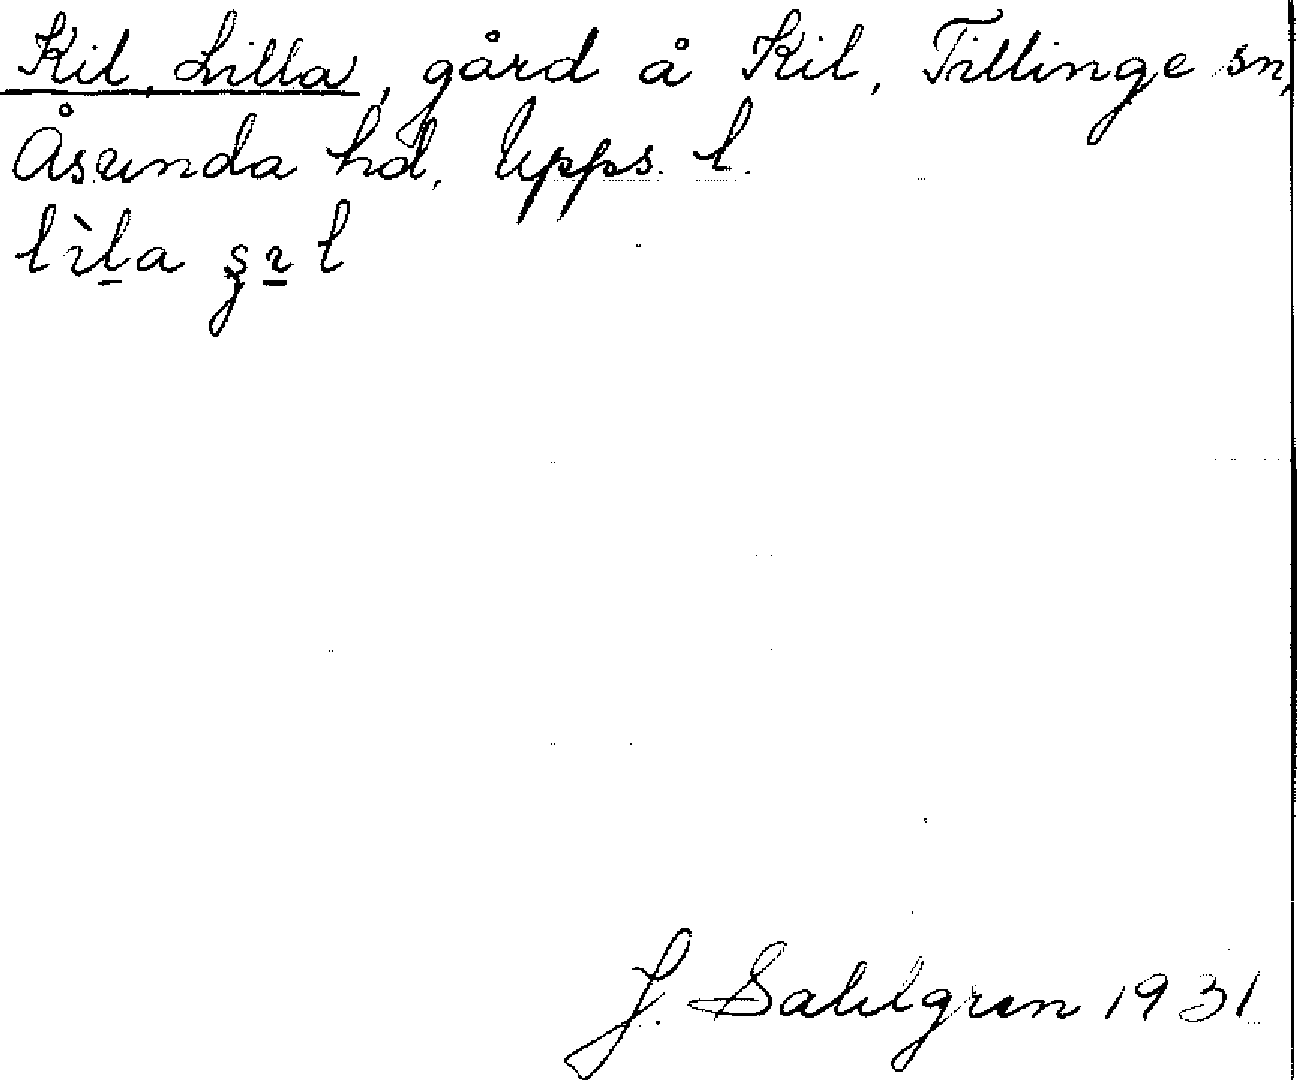 Kil, Lilla, gård å Kil, Tillinge sn,
Åsunda hd, Upps. l.
lìl̠a
J. Sahlgren 1931